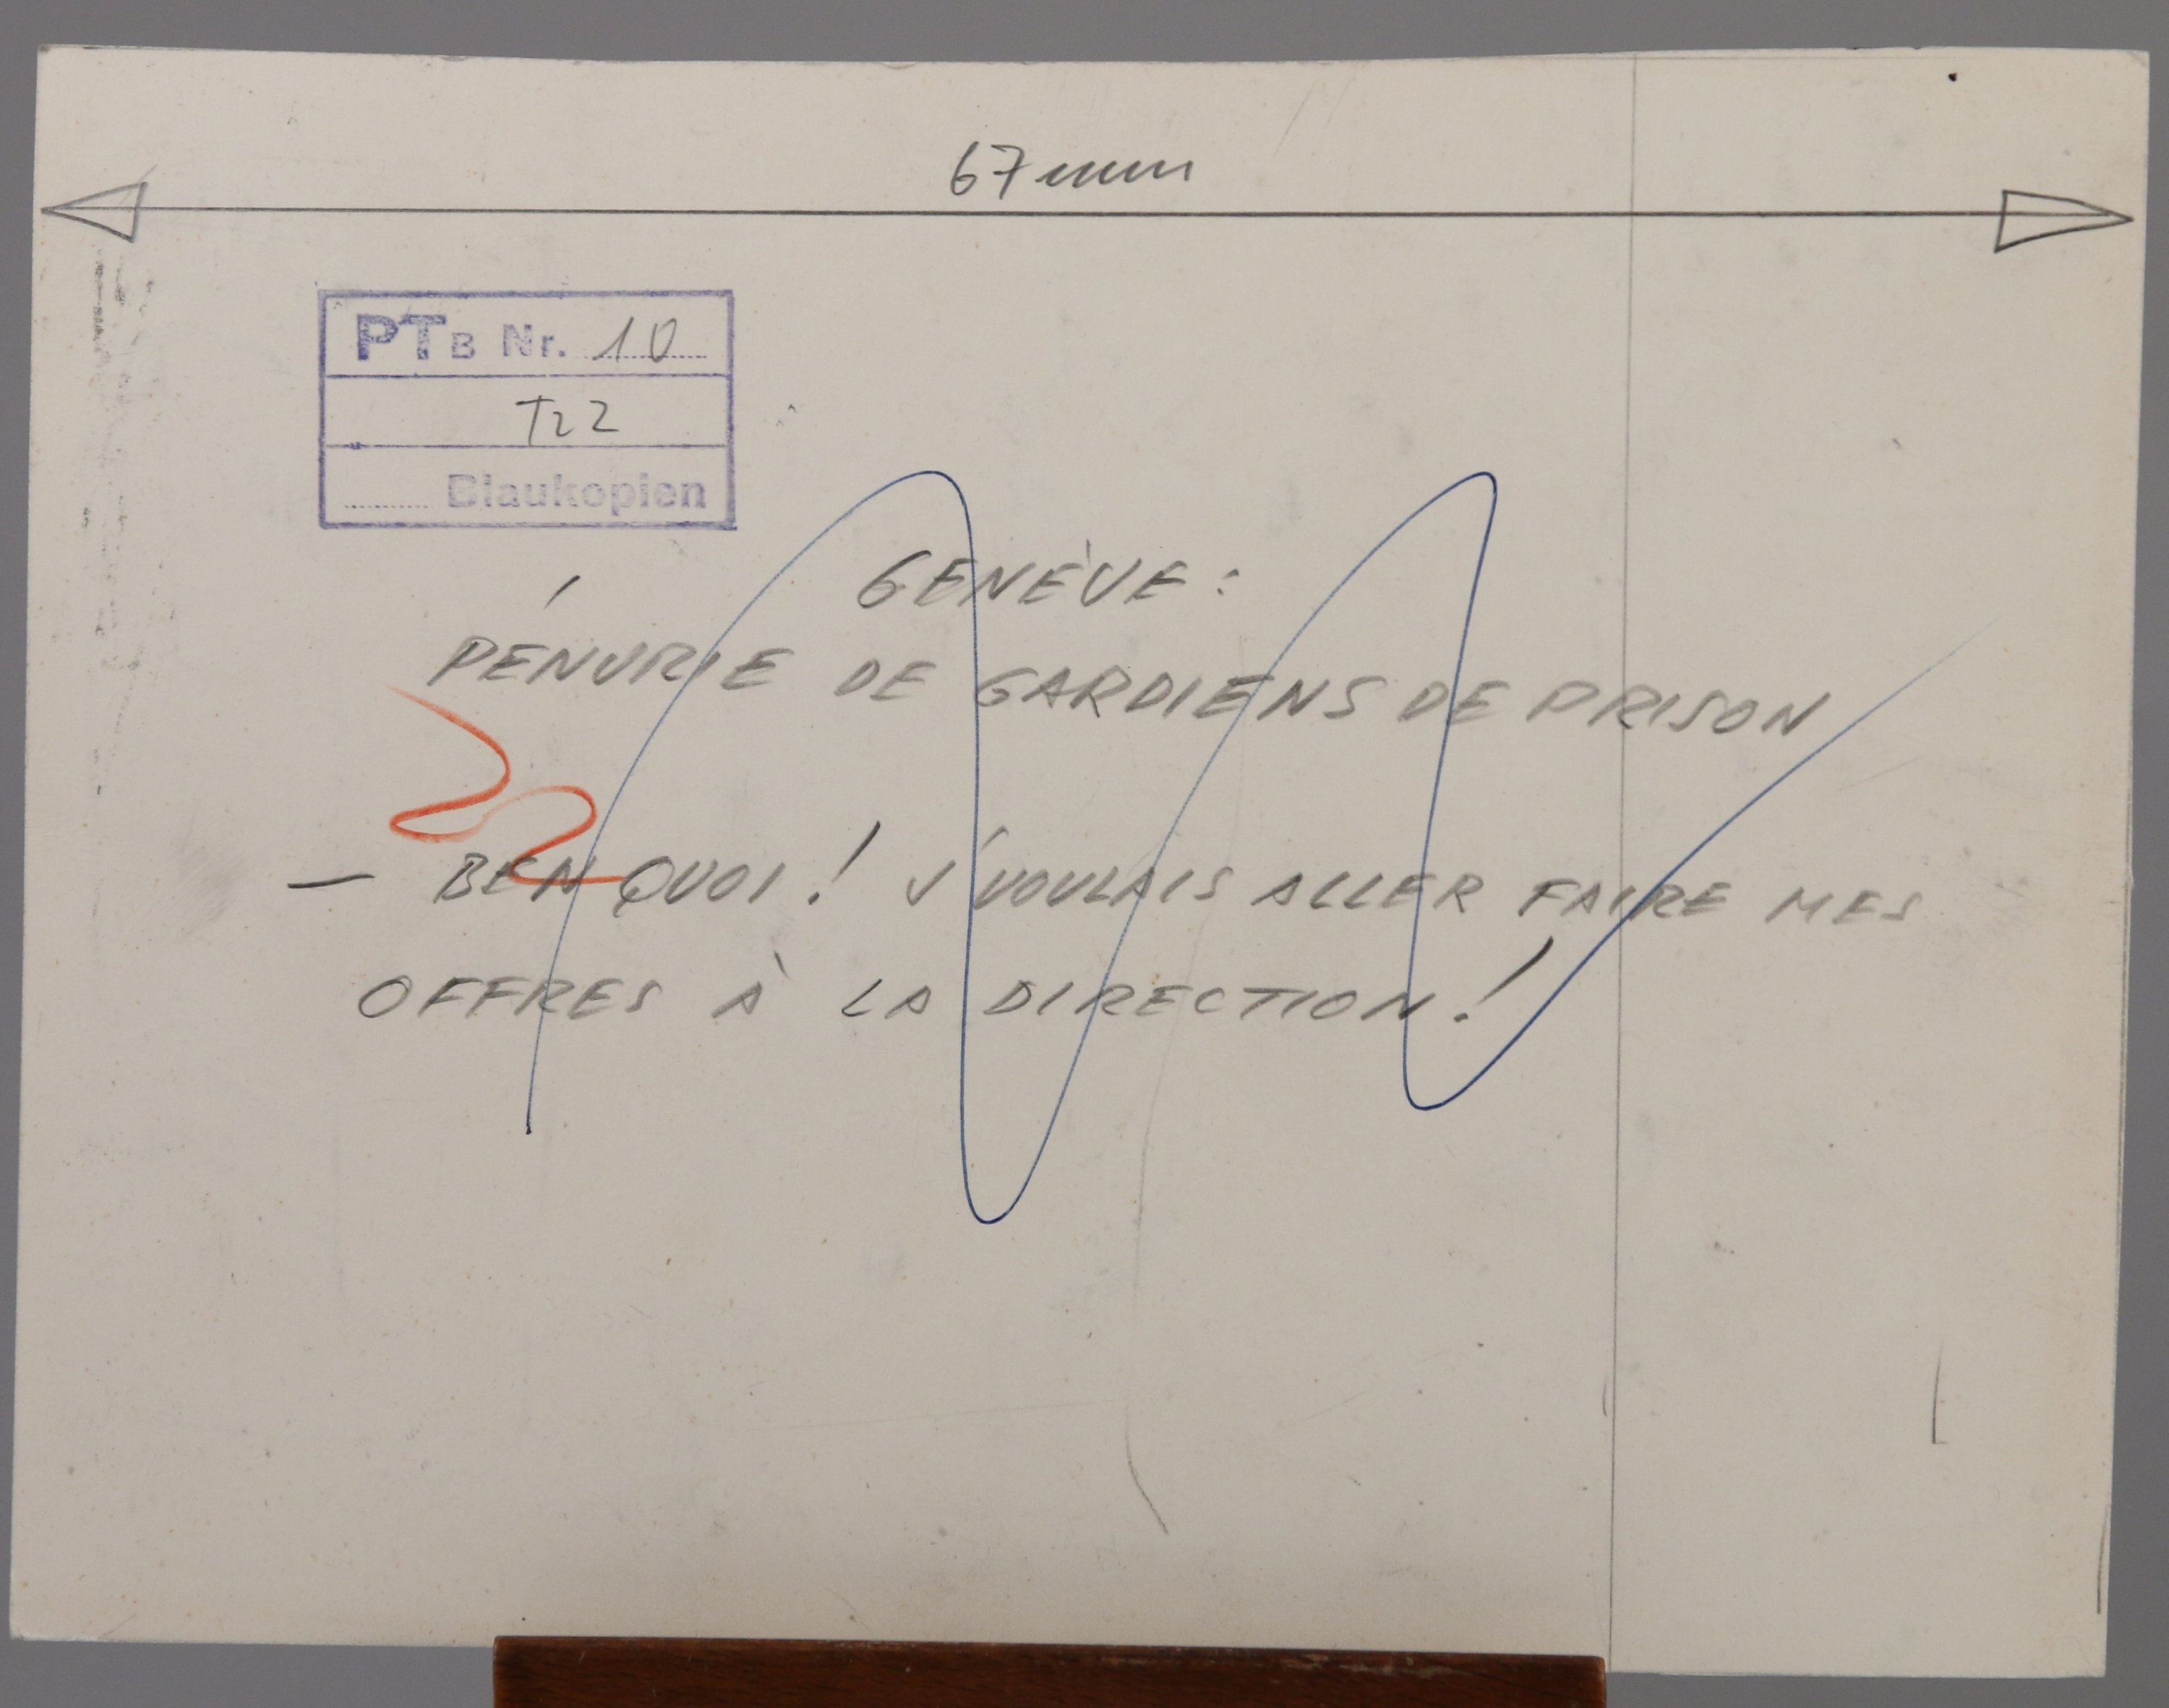 67 mm
PTB Nr. 10
Blaukopien
GENÈVE:
PÉNURIE DE GARDIENS DE PRISON
— BEN QUOI! J'VOULAIS ALLER FAIRE MES
OFFRES À LA DIRECTION!